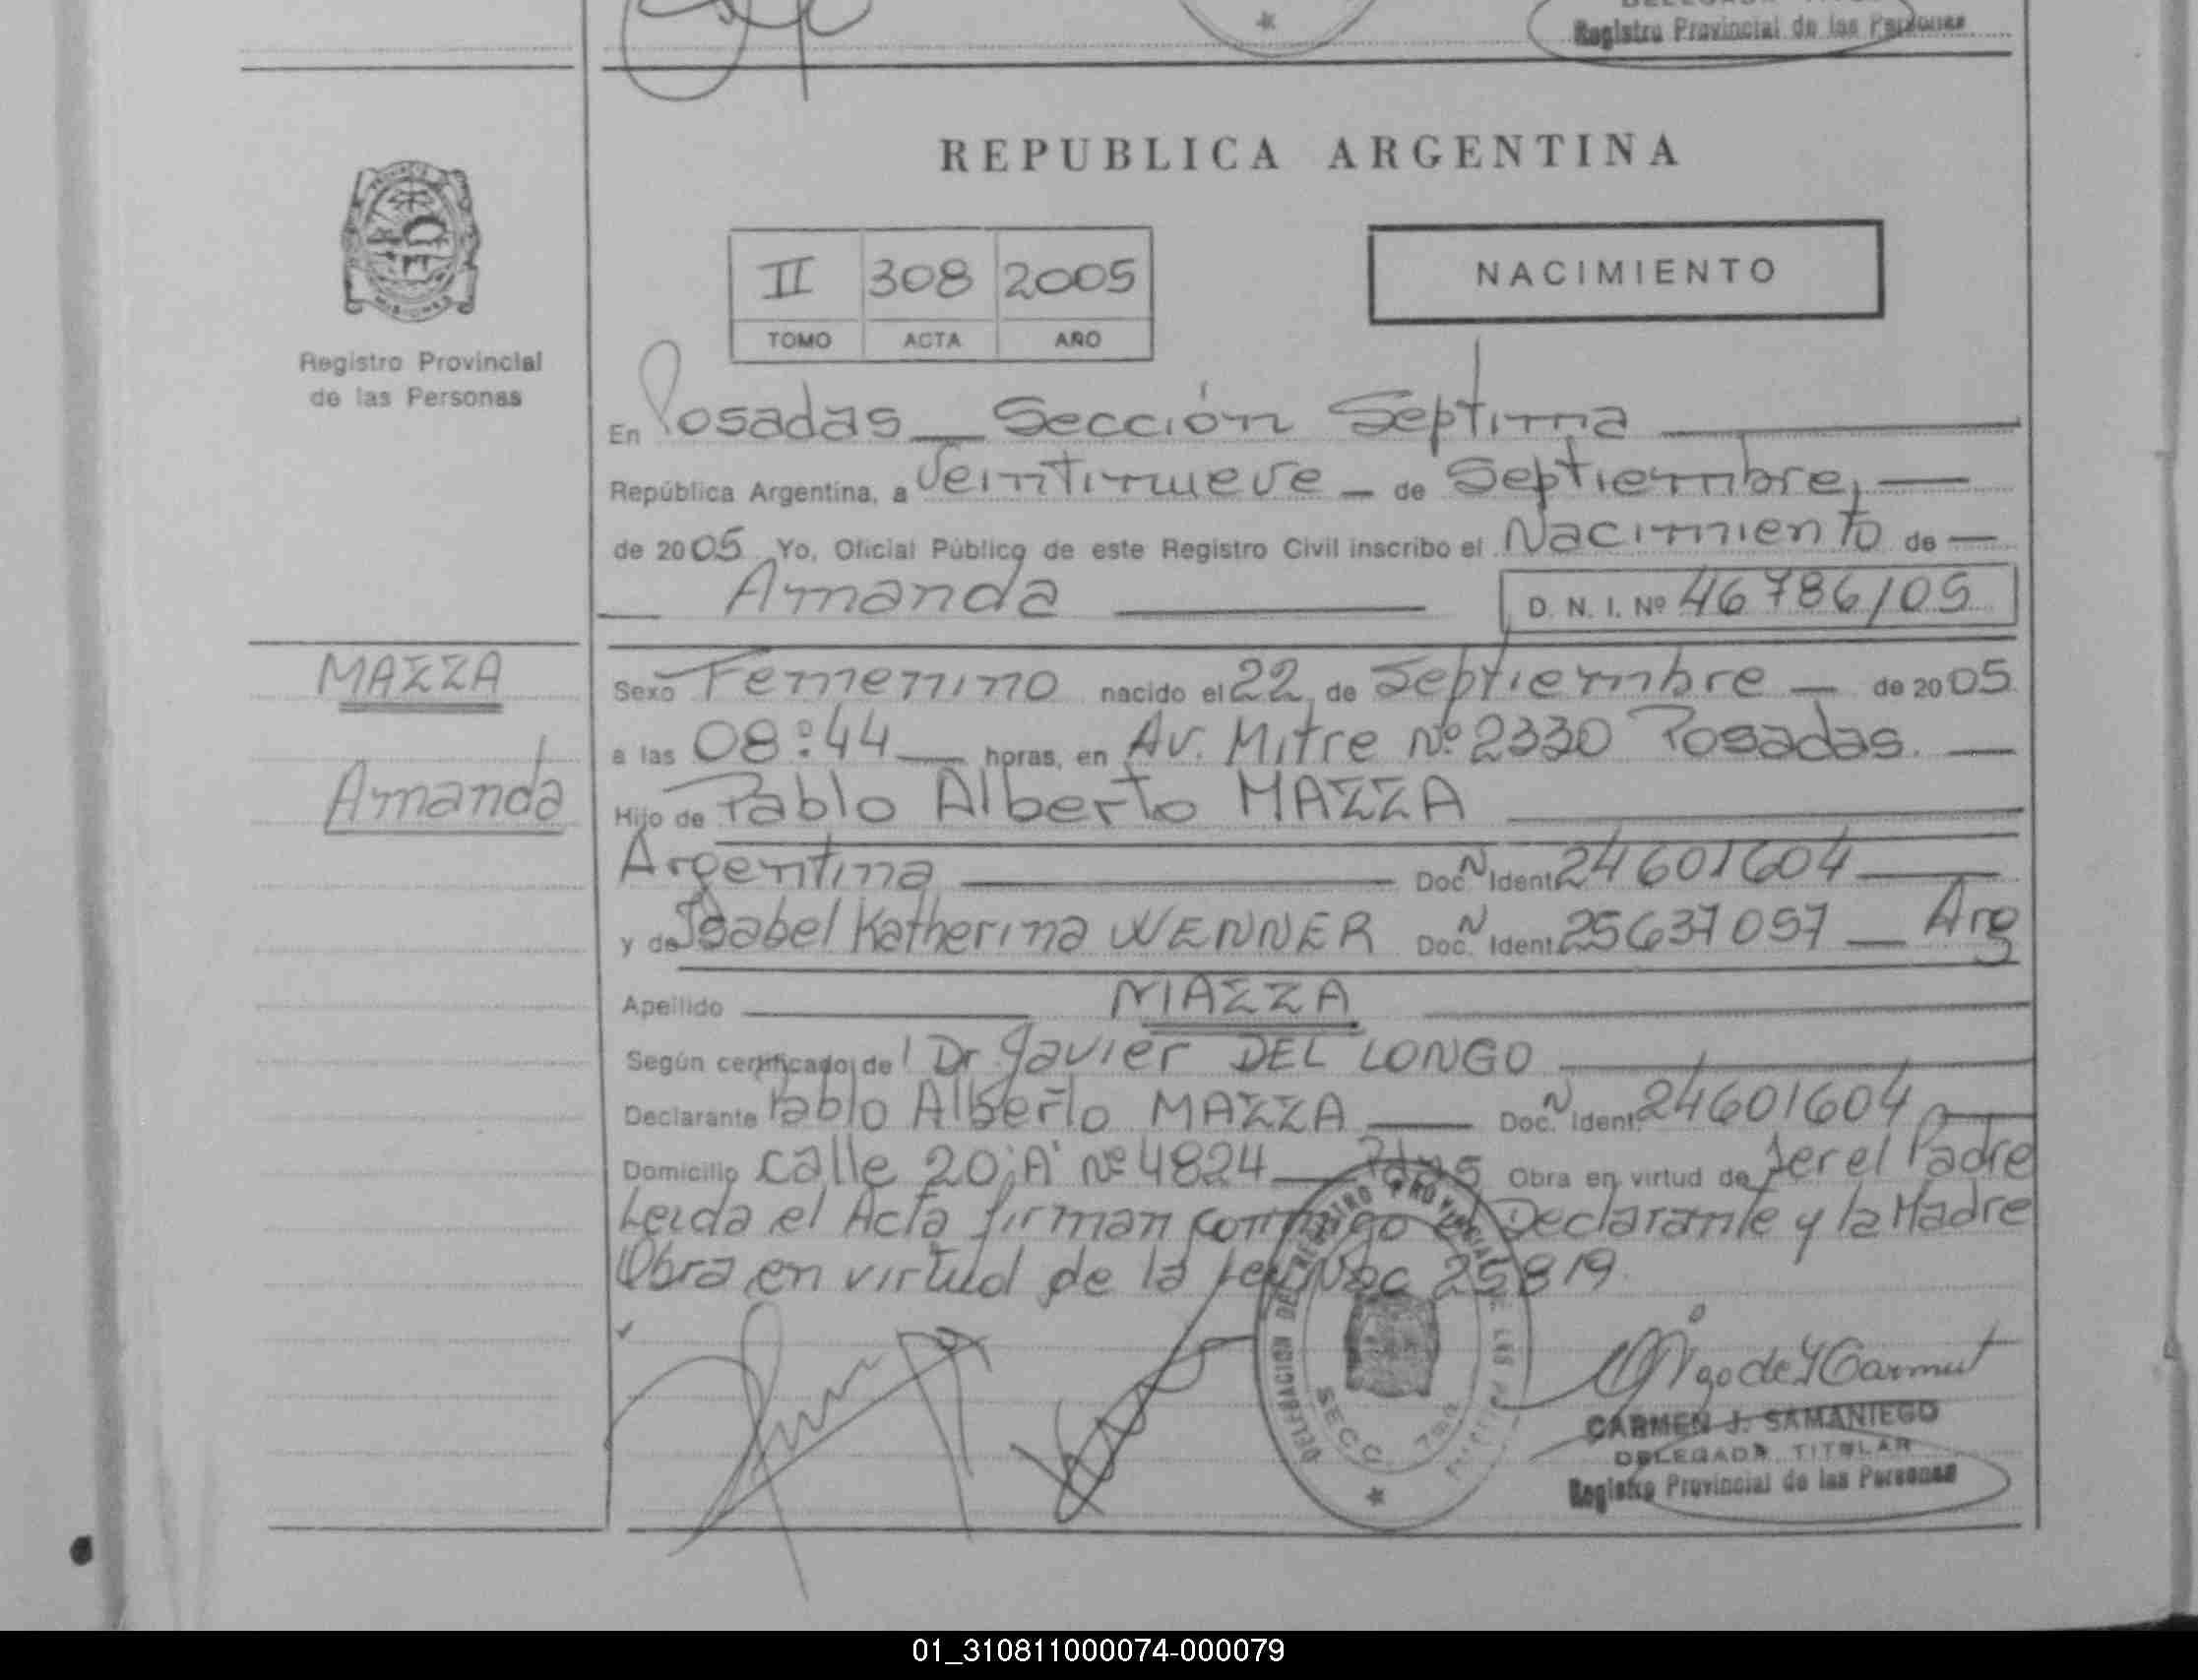 Registro Provincial de las Personas
REPUBLICA ARGENTINA
II 308 2005
TOMO ACTA AÑO
NACIMIENTO
Registro Provincial
de las Personas
En Posadas — Sección Septima
República Argentina, a Veintinueve — de Septiembre, —
de 2005 Yo, Oficial Público de este Registro Civil inscribo el Nacimiento de —
Amanda
D. N. I. Nº 46786105
MAZZA
Amanda
Sexo Femenino nacido el 22 de Septiembre — de 2005
a las 08:44 — horas, en Av. Mitre Nº 2330 Posadas. —
Hijo de Pablo Alberto MAZZA
Argentina — Doc. N Ident. 24601604 —
y de Isabel Katherina WENNER Doc. N Ident. 25637057 — Arg
Apellido MAZZA
Según certificado de Dr Javier DEL LONGO
Declarante Pablo Alberto MAZZA — Doc. N Ident. 24601604
Domicilio calle 20 "A" Nº 4824 — Pdas Obra en virtud de Ser el Padre
Leida el Acta firman conmigo el Declarante y la Madre
Obra en virtud de la Ley Nac 25819
DELEGACION DEL REGISTRO PROVINCIAL DE LAS
SECC. 7
CARMEN J. SAMANIEGO
DELEGADA TITULAR
Registro Provincial de las Personas
01_310811000074-000079